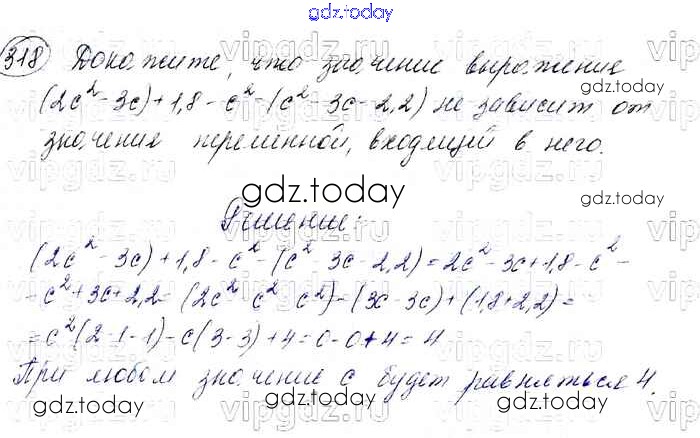 gdz.today
318 Докажите, что значение выражения
(2c² - 3c) + 1,8 - c² - (c² - 3c - 2,2) не зависит от
значения переменной, входящей в него.
gdz.today
Решение:
(2c² - 3c) + 1,8 - c² - (c² - 3c - 2,2) = 2c² - 3c + 1,8 - c² -
- c² + 3c + 2,2 = (2c² - c² - c²) - (3c - 3c) + (1,8 + 2,2) =
= c²(2 - 1 - 1) - c(3 - 3) + 4 = 0 - 0 + 4 = 4
При любом значение c будет равняться 4.
gdz.today gdz.today gdz.today